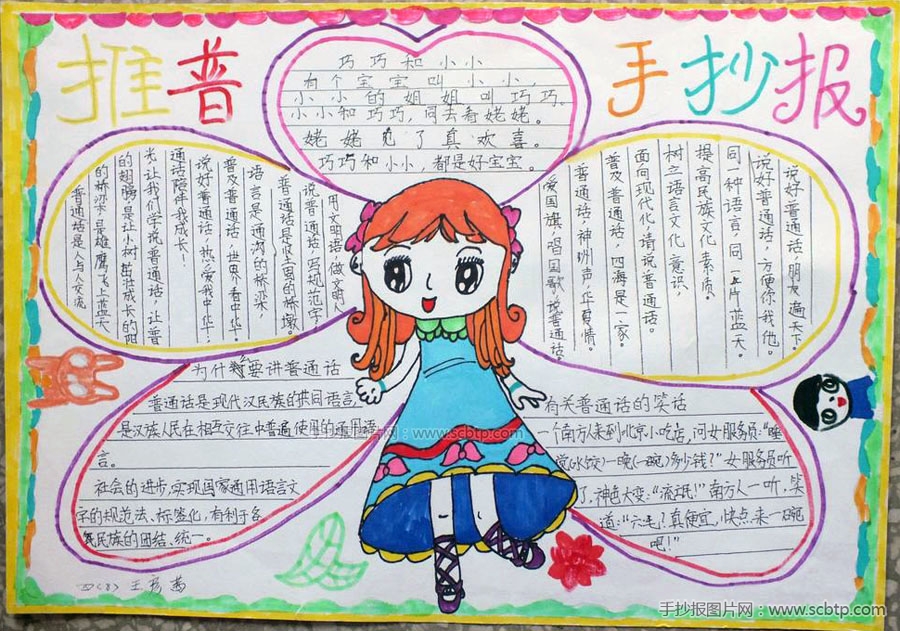 推普
手抄报
巧巧和小小
有个宝宝叫小小,
小小的姐姐叫巧巧。
小小和巧巧,同去看姥姥。
姥姥见了真欢喜。
巧巧和小小,都是好宝宝。
用文明语,做文明人
说普通话,写规范字,
普通话是
语言是沟通的桥梁,
普及普通话,世界看中华,
说好普通话,热爱我中华,
通话陪伴我成长!
光让我们学说普通话,让普
的翅膀是让小树茁壮成长的阳
的桥梁是雄鹰飞上蓝天
普通话是人与人交流
说好普通话,朋友遍天下。
说好普通话,方便你我他。
同一种语言,同一片蓝天。
提高民族文化素质。
树立语言文化意识,
面向现代化,请说普通话。
普及普通话,四海是一家。
普通话,神州声,华夏情。
爱国旗,唱国歌,说普通话。
为什么要讲普通话
普通话是现代汉民族的共同语言,
是汉族人民在相互交往中普遍使用的通用语
言。
社会的进步,实现国家通用语言文
字的规范法、标签化,有利于各
民族的团结、统一。
有关普通话的笑话
一个南方人来到北京小吃店,问女服务员:“睡
觉(水饺)一晚(一碗)多少钱?”女服务员听
了,神色大变:“流氓!”南方人一听,笑
道:“六毛?真便宜,快点来一碗
吧!”
四(8) 王彦茜
手抄报图片网:www.scbtp.com
手抄报图片网:www.scbtp.com